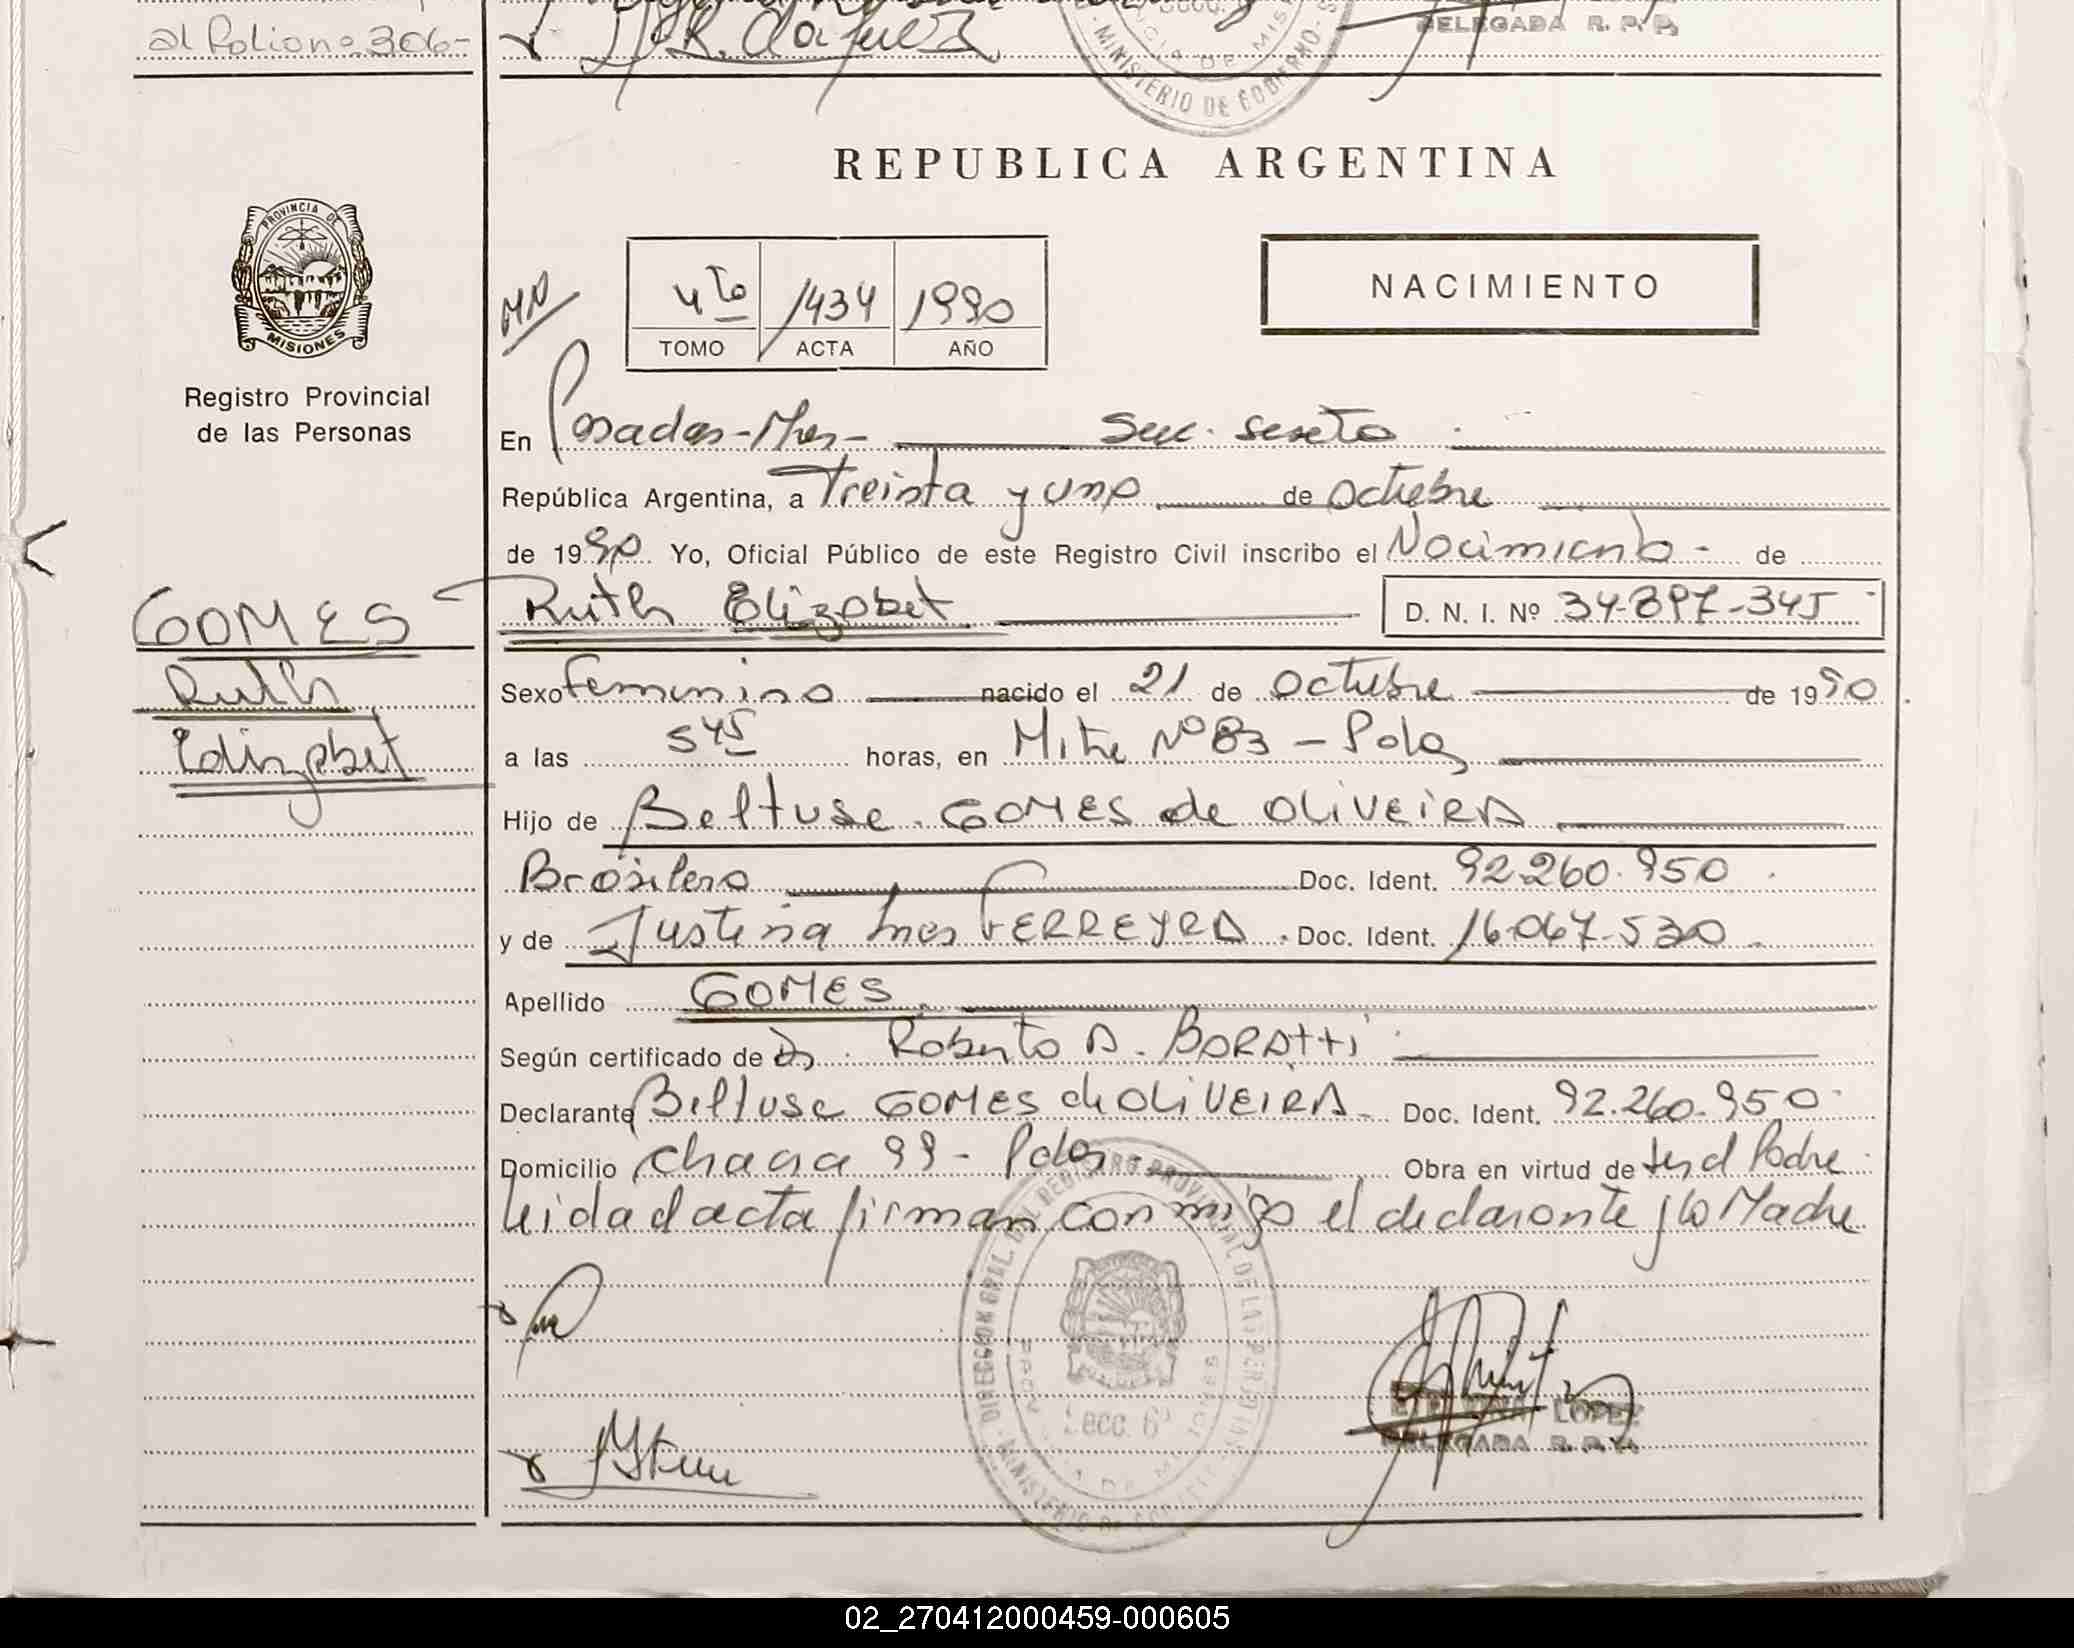 al Folio nº 306-
MINISTERIO DE GOBIERNO
DELEGADA R. P. P.
REPUBLICA ARGENTINA
PROVINCIA DE
MISIONES
Registro Provincial
de las Personas
4to 1434 1990
TOMO ACTA AÑO
NACIMIENTO
En Posadas-Mnes- Secc. sexta
República Argentina, a Treinta y uno de octubre
de 1990 Yo, Oficial Público de este Registro Civil inscribo el Nacimiento - de
GOMES
Ruth
Elizabet
Ruth Elizabet D. N. I. Nº 34-897-345
Sexo femenino nacido el 21 de octubre de 1990
a las 5 45 horas, en Mitre Nº 83 - Pdas
Hijo de Beltuse GOMES de OLIVEIRA
Brasilero Doc. Ident. 92.260.950
y de Justina Ines FERREYRA Doc. Ident. 16.067.530
Apellido GOMES
Según certificado de Dr. Roberto A. BORATTI
Declarante Beltuse GOMES de OLIVEIRA Doc. Ident. 92.260.950
Domicilio chacra 99 - Pdas Obra en virtud de ser el Padre
leida el acta firman conmigo el declarante y la Madre
DIRECCION GRAL. DEL REGISTRO PROVINCIAL DE LAS PERSONAS
Secc. 6ª
PROVINCIA DE MISIONES
MINISTERIO DE GOBIERNO
LOPEZ
DELEGADA R. P. P.
02_270412000459-000605